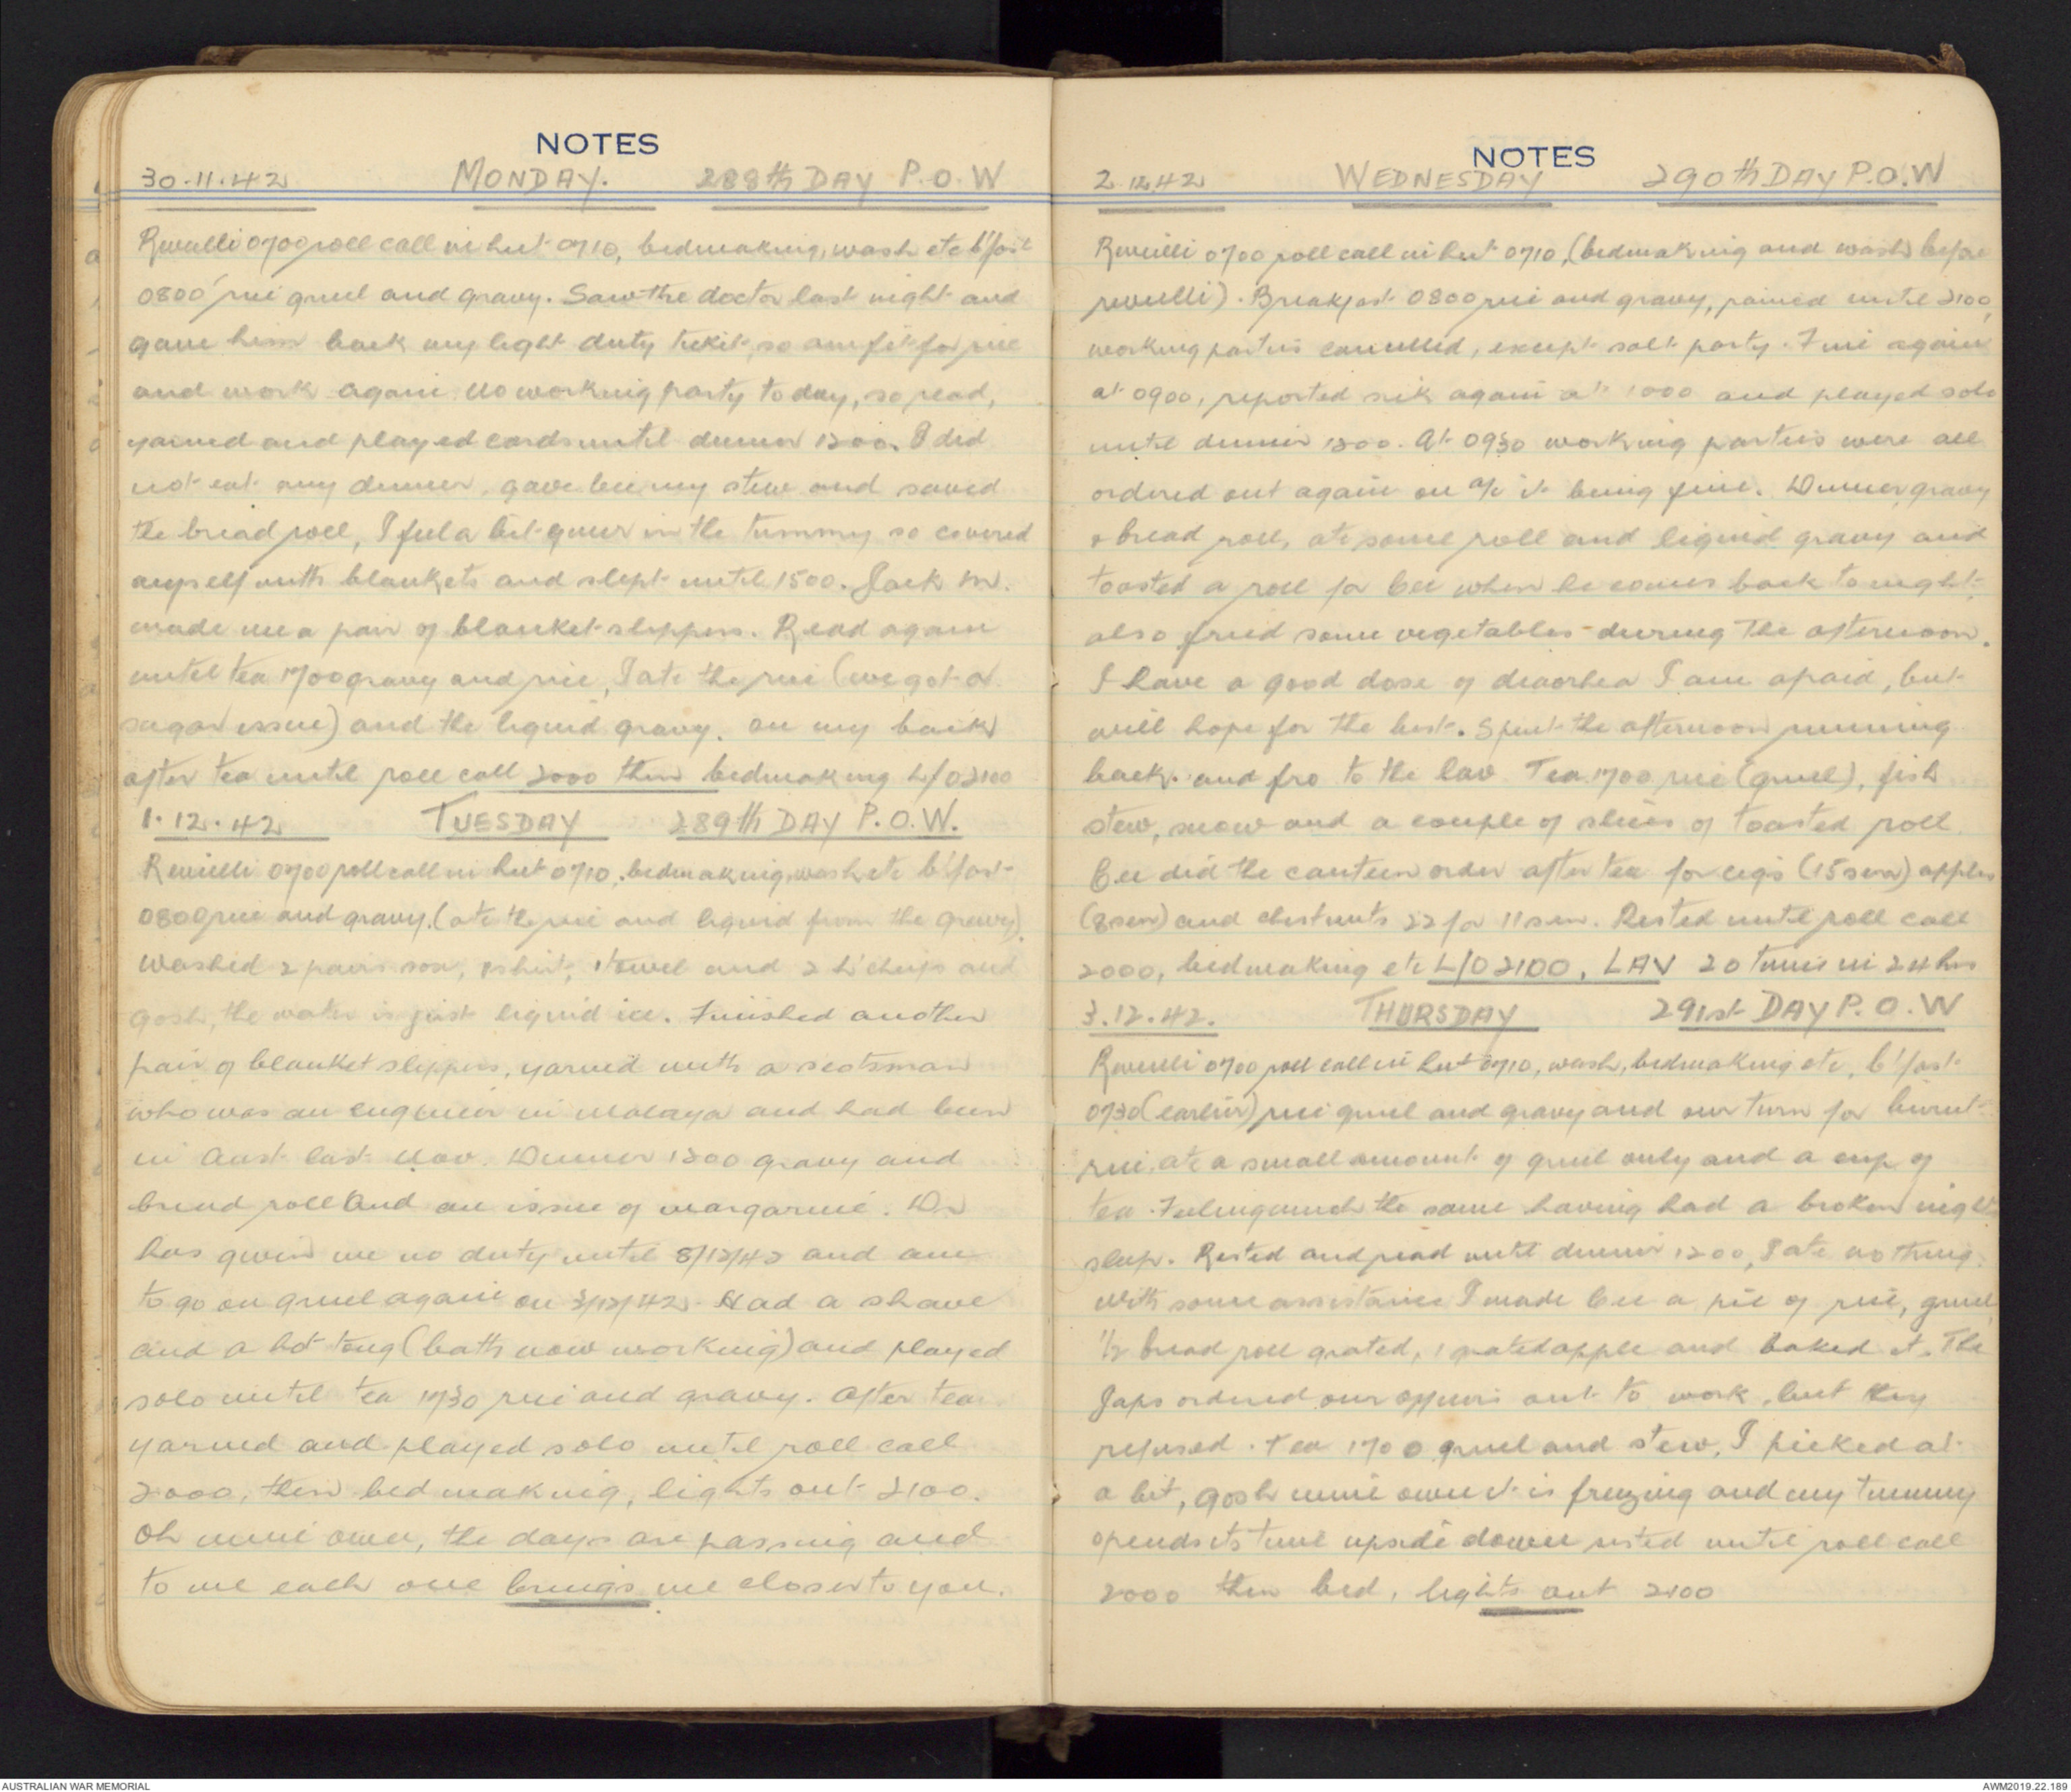 NOTES
30.11.42 MONDAY. 288th DAY P.O.W
Reveilli 0700 roll call in hut 0710, bedmaking, wash etc b'fast
0800 rice gruel and gravy. Saw the doctor last night and
gave him back my light duty ticket, so am fit for rice
and work again. No working party today, so read,
yarned and played cards until dinner 1200. I did
not eat any dinner, gave Cec my stew and saved
the bread roll, I feel a bit queer in the tummy so covered
myself with blankets and slept until 1500. Jack M.
made me a pair of blanket slippers. Read again
until tea 1700 gravy and rice, I ate the rice (we got a
sugar issue) and the liquid gravy. On my back
after tea until roll call 2000 then bedmaking L/O 2100
1.12.42 TUESDAY 289th DAY P.O.W.
Reveilli 0700 roll call in hut 0710, bedmaking, wash etc b'fast
0800 rice and gravy. (ate the rice and liquid from the gravy)
Washed 2 pairs sox, shirt, 1 towel and 2 h'chiefs and
gosh, the water is just liquid ice. Finished another
pair of blanket slippers, yarned with a scotsman
who was an engineer in Malaya and had been
in Aust. last Nov. Dinner 1200 gravy and
bread roll and an issue of margarine. Dr
has given me no duty until 8/12/42 and am
to go on gruel again on 3/12/42. Had a shave
and a hot tong (bath now working) and played
solo until tea 1730 rice and gravy. After tea
yarned and played solo until roll call
2000, then bedmaking, lights out 2100.
Oh mine own, the days are passing and
to me each one brings me closer to you.
NOTES
2.12.42 WEDNESDAY 290th DAY P.O.W
Reveilli 0700 roll call in hut 0710, (bedmaking and wash before
reveilli). Breakfast 0800 rice and gravy, rained until
working parties cancelled, except salt party. Fine again
at 0900, reported sick again at 1000 and played solo
until dinner 1200. At 0930 working parties were all
ordered out again on a/c it being fine. Dinner gravy
& bread roll, ate some roll and liquid gravy and
toasted a roll for Cec when he comes back tonight,
also fried some vegetables during the afternoon.
I have a good dose of diaorhea I am afraid, but
will hope for the best. Spent the afternoon running
back and fro to the lav. Tea 1700 rice (gruel), fish
stew, and a couple of slices of toasted roll.
Cec did the canteen order after tea for cigs (15 sen) apples
(8 sen) and chestnuts 22 for 11 sen. Rested until roll call
2000, bedmaking etc L/O 2100, LAV 20 times in 24 hrs
3.12.42. THURSDAY 291st DAY P.O.W
Reveilli 0700 roll call in hut 0710, wash, bedmaking etc, b'fast
0730 (earlier) rice gruel and gravy and our turn for burnt
rice, ate a small amount of gruel only and a cup of
tea. Feeling much the same having had a broken night
sleep. Rested and read until dinner 1200, I ate nothing.
With some assistance I made Cec a pie of rice, gruel,
1/2 bread roll grated, 1 grated apple and baked it. The
Japs ordered our officers out to work, but they
refused. Tea 1700 gruel and stew, I picked at
a bit, gosh mine own it is freezing and my tummy
spends its time upside down rested until roll call
2000 then bed, lights out 2100
AUSTRALIAN WAR MEMORIAL
AWM2019.22.189